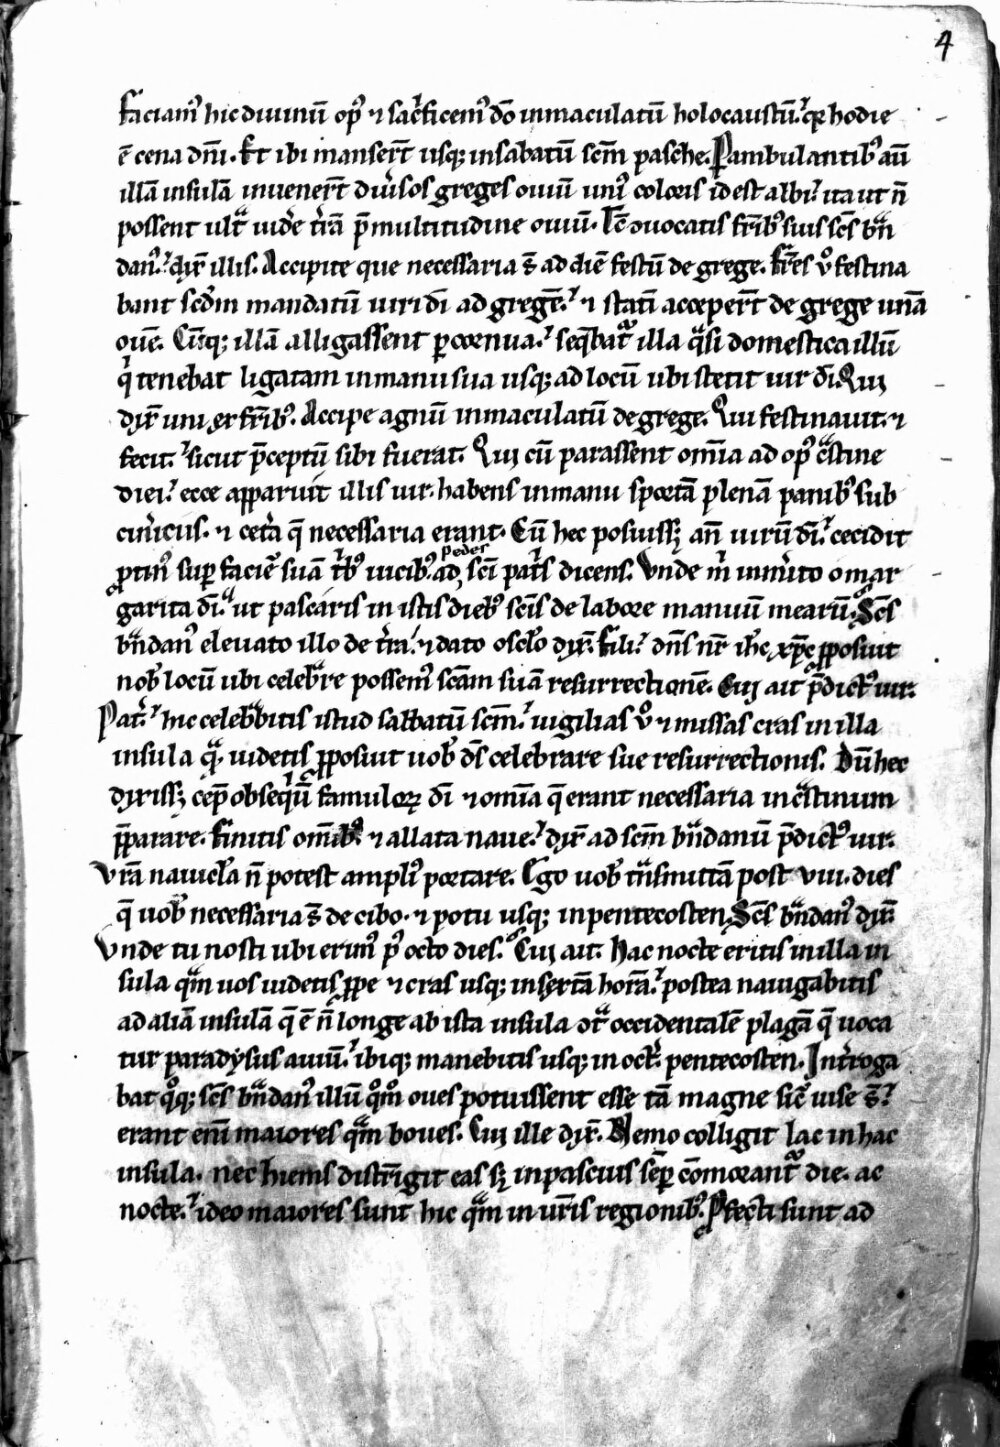 4
faciam᷒ hic diuinū op᷒ ⁊ sac͛ficem᷒ dō inmaculatū holocaustū. qꝛ hodie
ē cena dn̄i. Et ibi manser̄t usq; in sabatū sc̄m pasche. Pambulantib᷒ aū
illā insulā inuener̄t diu͛sos greges ouiū uni᷒ coloris id est albi. ita ut n̄
possent ultᷓ uide͛ t͛rā p̄ multitudine ouiū. Tc̄ ↄuocatis fr̄ib᷒ suis sc̄s bnᷓ
dan᷒. dix̄ illis. Accipite que necessaria s̄ ad diē festū de grege. fr̄es v͛o festina
bant sc̄dm mandatū uiri dī ad gregē. ⁊ statī acceper̄t de grege unā
ouē. Cūq; illā alligassent p cornua. seq̄bat᷑ illa qᷓsi domestica illū
qⁱ tenebat ligatam in manu sua usq; ad locū ubi stetit uir dī. Qui
dix̄ uni ex fr̄ib᷒. Accipe agnū inmaculatū de grege. Qui festinauit. ⁊
fecit. sicut p̄ceptū sibi fuerat. Qui cū parassent om̄ia ad op᷒ cᷓstine
diei. ecce apparuit illis uir. habens in manu sportā plenā panib᷒ sub
cin͛icus. ⁊ cet͛a q̄ necessaria erant. Cū hec posuiss; an̄ uirū dī. cecidit
ꝓtin᷒ sup faciē suā t͛b᷒ uicib᷒ ad peder sc̄i pat͛s dicens. Vnde m̄ inm͛ito o mar
garita dī. ut pascaris in istis dieb᷒ sc̄is de labore manuū mearū. Sc̄s
bnᷓdan᷒ eleuato illo de t͛ra. ⁊ dato oscl̄o dix̄. fili. dn̄s nr̄ ih̄c xp̄c ꝓposuit
nob᷒ locū ubi celebᷓre possem᷒ sc̄am suā resurrectionē. Cui ait p̄dict᷒ uir.
Pat͛. hic celebᷓbitis istud sabbatū sc̄m. uigilias v͛o ⁊ missas cras in illa
insula qᷓ uidetis ꝓposuit uob᷒ ds̄ celebrare sue resurrectionis. Dū hec
dixiss; cep̄ obseqⁱū famuloꝝ dī ⁊ om̄ia q̄ erant necessaria in cᷓstinum
p̄parare. finitis omīb᷒ ⁊ allata naue. dix̄ ad sc̄m bnᷓdanū p̄dict᷒ uir.
Vr̄a nauicl̄a n̄ potest ampli᷒ portare. Ego uob᷒ tᷓnsmittā post viii. dies
q̄ uob᷒ necessaria s̄ de cibo. ⁊ potu usq; in pentecosten. Sc̄s bnᷓdan᷒ dix̄.
Vnde tu nosti ubi erim᷒ p᷒ octo dies. Cui ait. Hac nocte eritis in illa in
sula qᷓm uos uidetis ꝓpe ⁊ cras usq; in sextā horā. postea nauigabitis
ad aliā insulā q̄ ē n̄ longe ab ista insula ↄtᷓ occidentalē plagā q̄ uoca
tur paradysus auiū. ibiq; manebitis usq; in oct͛. pentecosten. Int͛roga
bat q͛oq; sc̄s bnᷓdan᷒ illū q͛om͛o oues potuissent esse tā magne sic̄ uise s̄.
erant enī maiores qᷓm boues. Cui ille dix̄. Nemo colligit lac in hac
insula. nec hiems distrīgit eas s; in pascuis semp cōmorant᷑ die. ac
nocte. ideo maiores sunt hic qᷓm in ur̄is regionib᷒. Ꝓfecti sunt ad